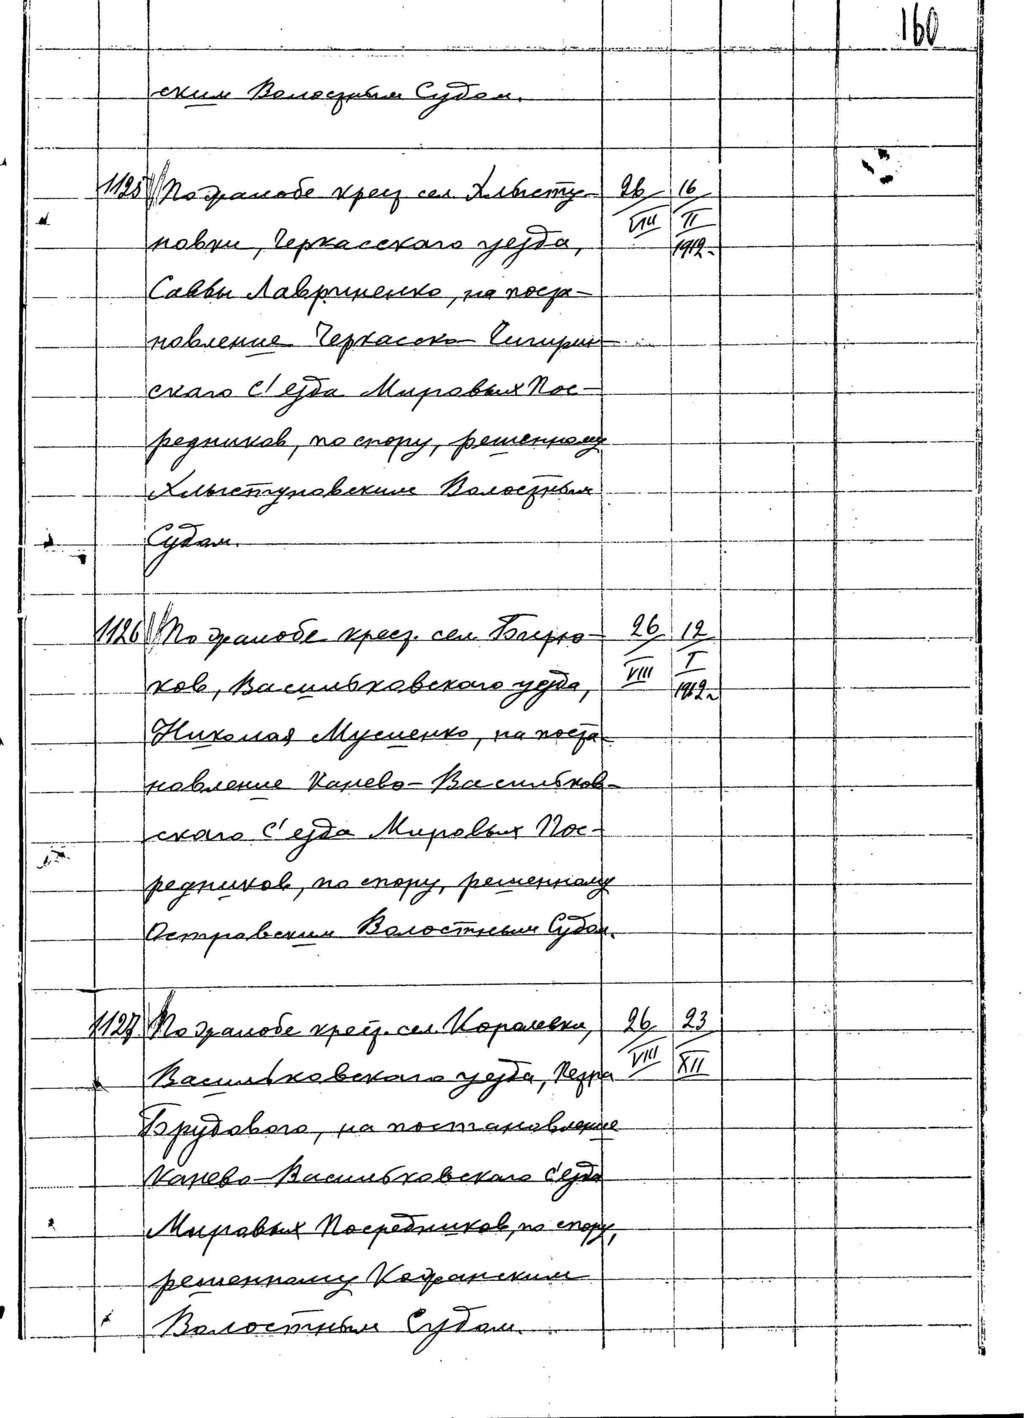 160
ским Волостным Судом.
1125 По жалобе крест. сел. Хлысту- 26 16
новки, Черкасского уезда, VIII II
Саввы Лавриненко, на поста- 1912.
новление Черкасско-Чигирин-
скаго с'езда Мировых Пос-
редников, по спору, решенному
Хлыстуновским Волостным
Судом.
1126 По жалобе крест. сел. Бирю- 26 12
ков, Васильковского уезда, VIII I 1912г.
Николая Мусиенко, на поста-
новление Канево-Васильков-
ского с'езда Мировых Пос-
редников, по спору, решенному
Островским Волостным Судом.
1127 По жалобе крест. сел. Королевки, 26 23
Васильковского уезда, Петра VIII XII
Брудового, на постановление
Канево-Васильковского с'езда
Мировых Посредников, по спору,
решенному Кожанским
Волостным Судом.